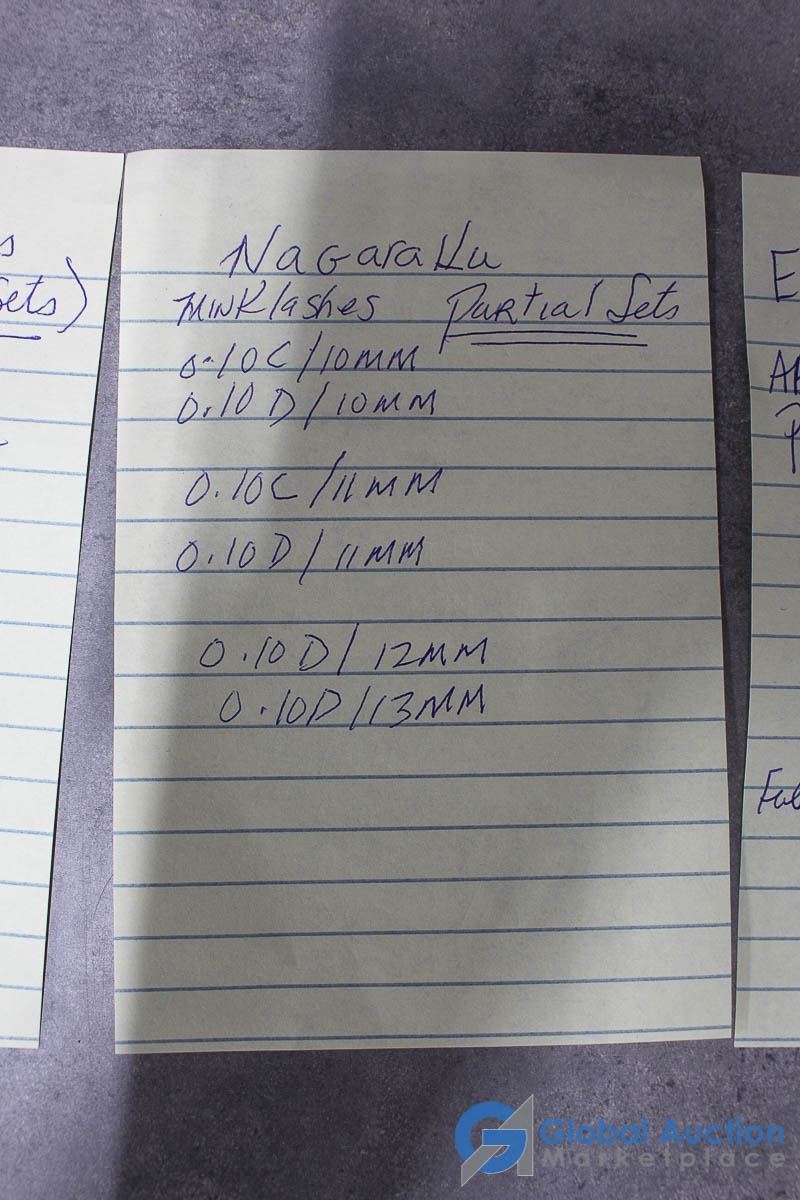 s
Sets)
Nagaraku
MINK lashes Partial Sets
0.10C/10MM
0.10D/10MM
0.10C/11MM
0.10D/11MM
0.10D/12MM
0.10D/13MM
E
Global Auction
Marketplace